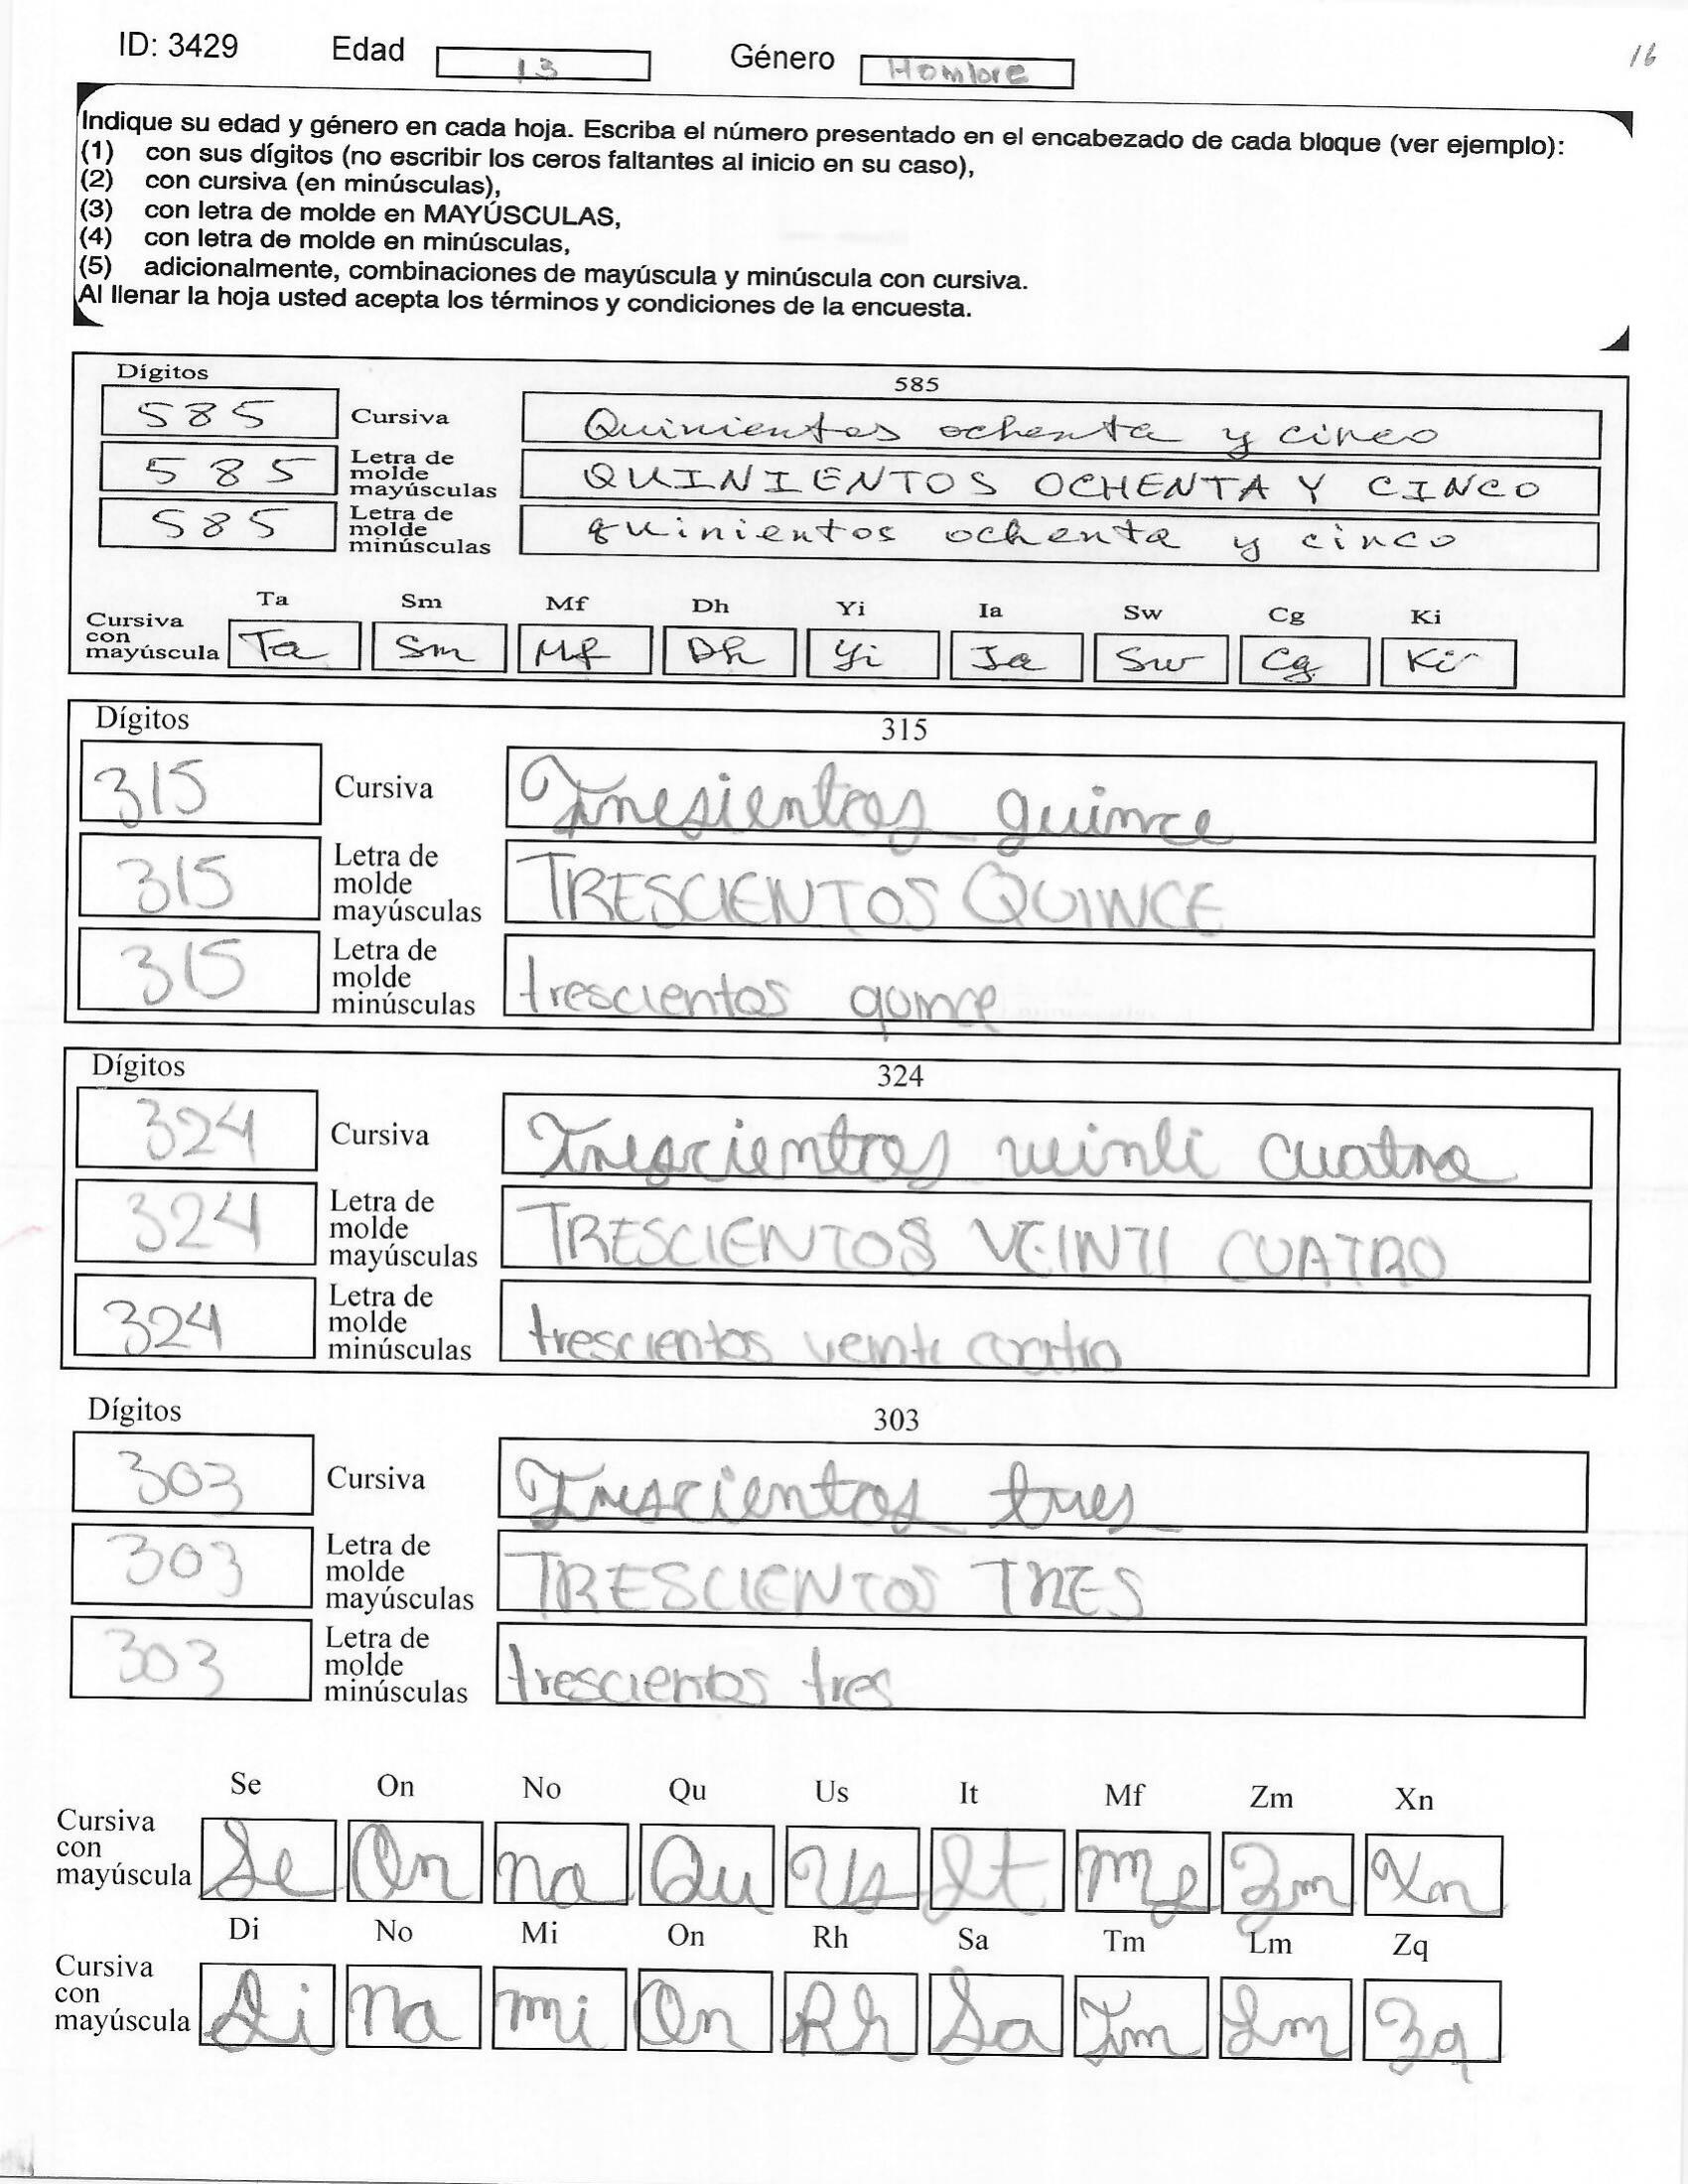 ID: 3429 Edad 13 Género Hombre 16
Indique su edad y género en cada hoja. Escriba el número presentado en el encabezado de cada bloque (ver ejemplo):
(1) con sus dígitos (no escribir los ceros faltantes al inicio en su caso),
(2) con cursiva (en minúsculas),
(3) con letra de molde en MAYÚSCULAS,
(4) con letra de molde en minúsculas,
(5) adicionalmente, combinaciones de mayúscula y minúscula con cursiva.
Al llenar la hoja usted acepta los términos y condiciones de la encuesta.
Dígitos 585
585 Cursiva Quinientos ochenta y cinco
585 Letra de molde mayúsculas QUINIENTOS OCHENTA Y CINCO
585 Letra de molde minúsculas quinientos ochenta y cinco
Ta Sm Mf Dh Yi Ia Sw Cg Ki
Cursiva con mayúscula Ta Sm Mf Dh Yi Ia Sw Cg Ki
Dígitos 315
315 Cursiva Tresientos quince
315 Letra de molde mayúsculas TRESCIENTOS QUINCE
315 Letra de molde minúsculas trescientos quince
Dígitos 324
324 Cursiva Trescientos veinti cuatro
324 Letra de molde mayúsculas TRESCIENTOS VEINTI CUATRO
324 Letra de molde minúsculas trescientos veinti cuatro
Dígitos 303
303 Cursiva Trescientos tres
303 Letra de molde mayúsculas TRESCIENTOS TRES
303 Letra de molde minúsculas trescientos tres
Se On No Qu Us It Mf Zm Xn
Cursiva con mayúscula Se On No Qu Us It Mf Zm Xn
Di No Mi On Rh Sa Tm Lm Zq
Cursiva con mayúscula Di No Mi On Rh Sa Tm Lm Zq